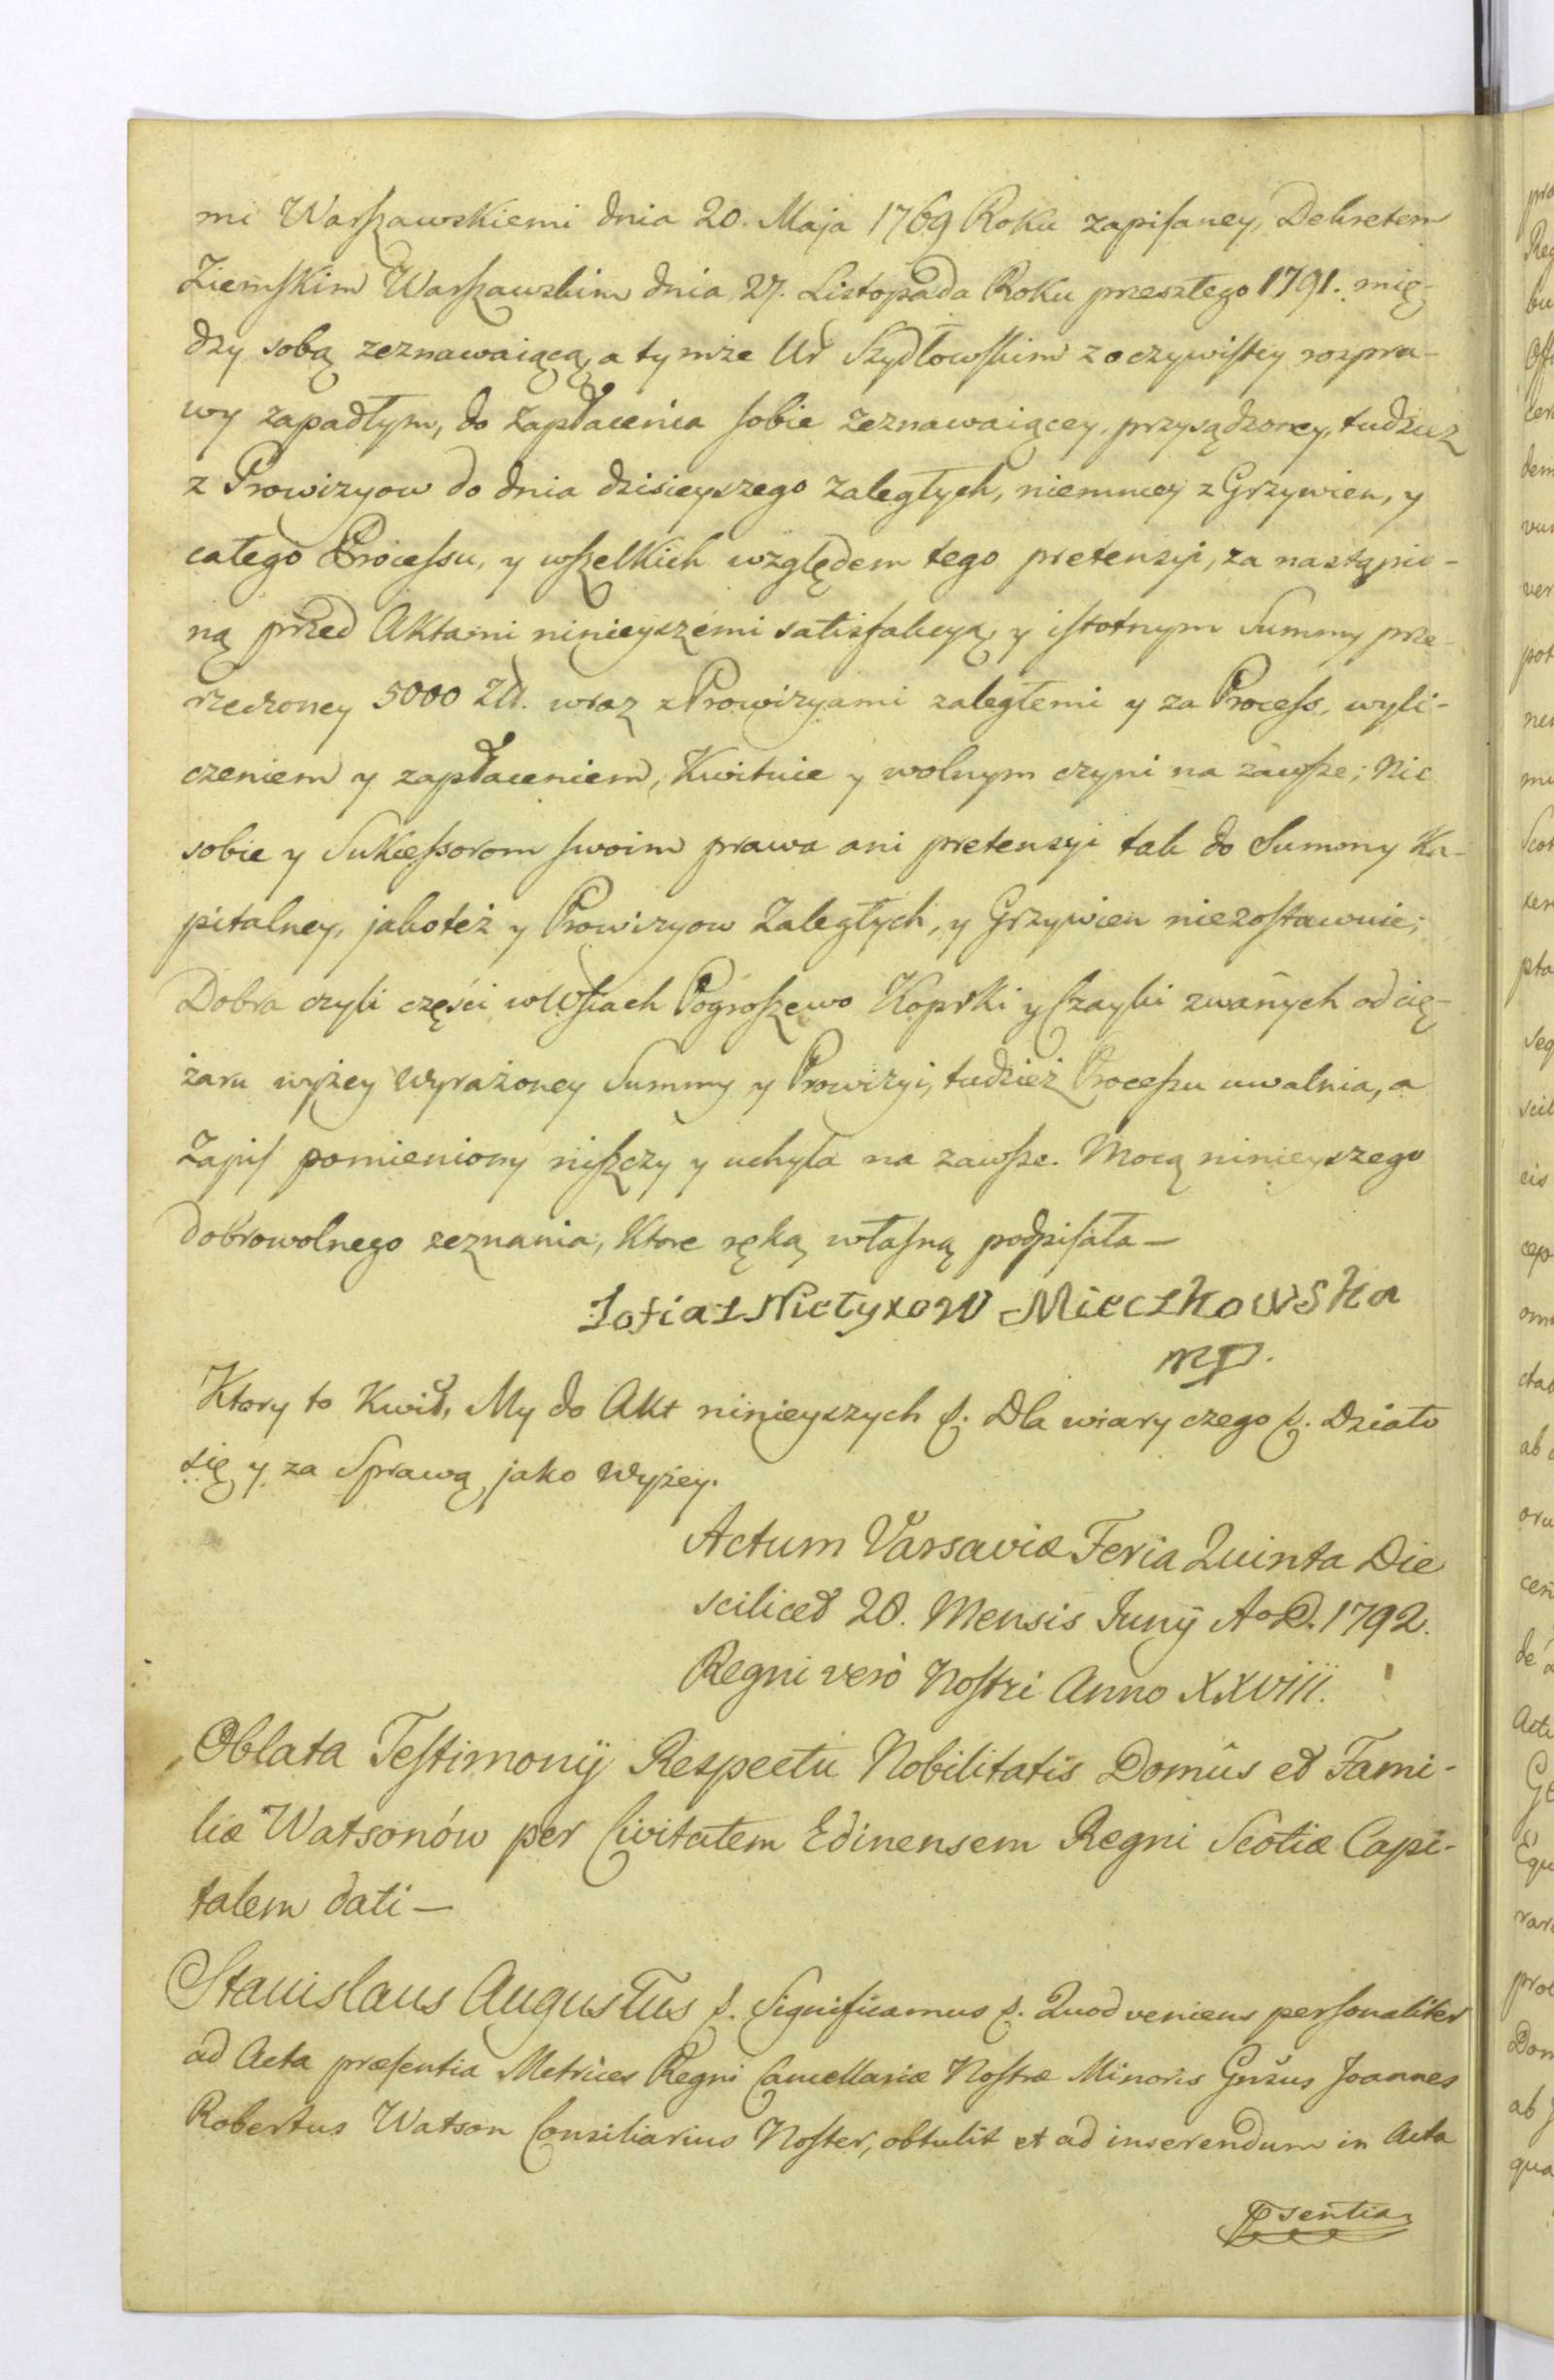 mi Warszawskiemi dnia 20. Maja 1769 Roku zapisaney, Dekretem
Ziemskim Warszawskim dnia 27. Listopada Roku przeszłego 1791. mię-
dzy sobą zeznawaiącą, a tymże Ur Szydłowskim z oczywistey rozpra-
wy zapadłym, do zapłacenia sobie zeznawaiącey, przysądzoney, tudzież
z Prowizyow do dnia dzisieyszego zaległych, niemniey z Grzywien, y
całego Processu, y wszelkich względem tego pretensyi, za nastąpio-
ną przed Aktami ninieyszemi satisfakcyą, y istotnym Summy prze-
rzeczoney 5000 Zł. wraz z Prowizyami zaległemi y za Process, wyli-
czeniem y zapłaceniem, Kwituie y wolnym czyni na zawsze; Nic
sobie y Sukcessorom swoim prawa ani pretensyi tak do Summy Ka-
pitalney, jakoteż y Prowizyow Zaległych, y Grzywien niezostawuie;
Dobra czyli części w Wsiach Pogroszewo Koprki y Czayki zwanych od cię-
żaru wyżey wyrażoney Summy y Prowizyi, tudzież Processu uwalnia, a
Zapis pomieniony niszczy y uchyla na zawsze. Mocą ninieyszego
dobrowolnego zeznania, Ktore ręką własną podpisała —
Zofia z Nietyxow Mieczkowska
mp.
Ktory to Kwit, My do Akt ninieyszych &. Dla wiary czego &. Działo
się y za Sprawą jako wyżey.
Actum Varsaviæ Feria Quinta Die
scilicet 28. Mensis Junÿ Ao D. 1792.
Regni verò Nostri Anno XXVIII.
Oblata Testimonÿ Respectu Nobilitatis Domûs et Fami-
liæ Watsonów per Civitatem Edinensem Regni Scotiæ Capi-
talem dati —
Stanislaus Augustus &. Significamus &. Quod veniens personaliter
ad Acta præsentia Metrices Regni Cancellariæ Nostræ Minoris Gnrsus Joannes
Robertus Watson Consiliarius Noster, obtulit et ad inserendum in Acta
Psentia